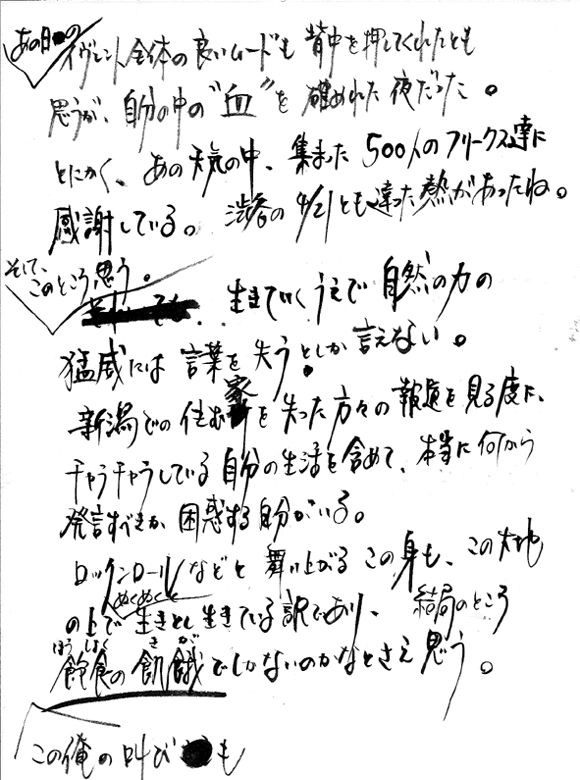 あの日の
イヴェント全体の良いムードも背中を押してくれたとも
思うが、自分の中の“血”を確められた夜だった。
とにかく、あの天気の中、集まった500人のフリークス達に
感謝している。渋谷の4/21とも違った熱があったね。
そして、
このところ思う。
生きていくうえで自然の力の
猛威には言葉を失うとしか言えない。
新潟での住む家を失った方々の報道を見る度に、
チャラチャラしている自分の生活を含めて、本当に何から
発言すべきか困惑する自分がいる。
ロックンロールなどと舞い上がるこの身も、この大地
ぬくぬくと
の上で生きとし生きている訳であり、結局のところ
ほうしょく が
飽食の飢餓でしかないのかなとさえ思う。
この俺の叫びも